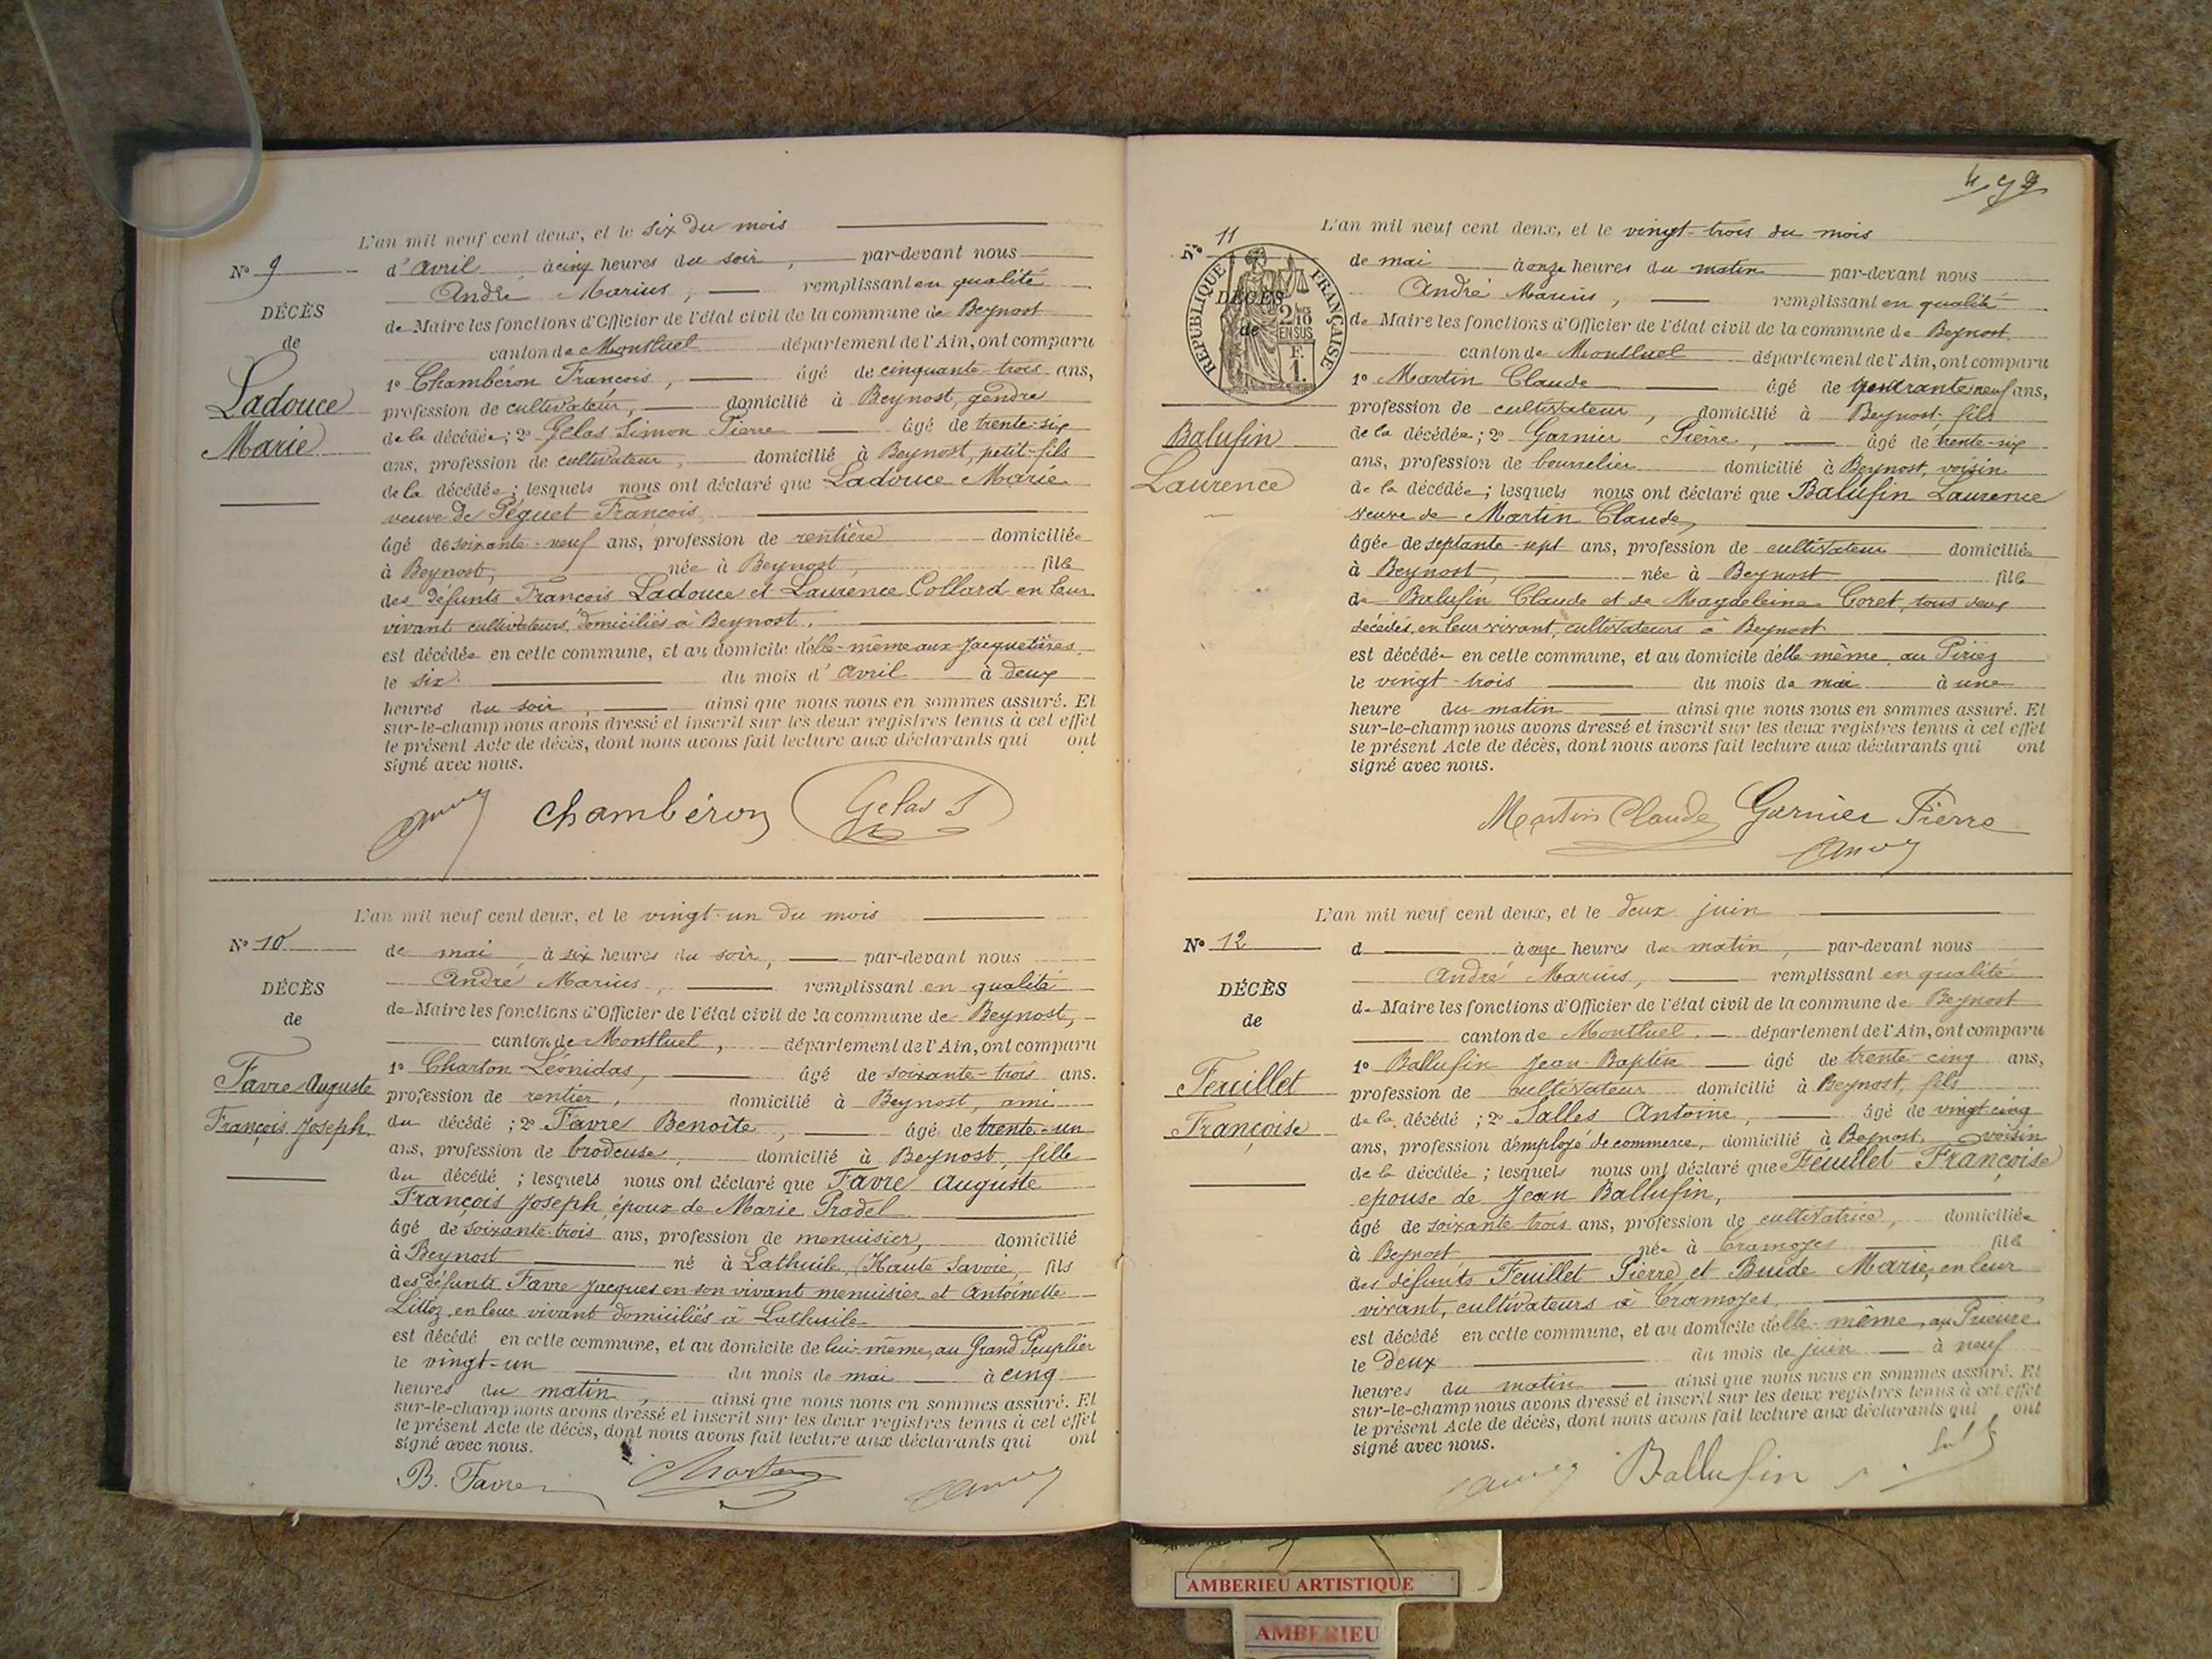 L'an mil neuf cent deux, et le six du mois
N° 9
d'avril à cinq heures du soir, par-devant nous
André Marius, remplissant en qualité
DÉCÈS
de Maire les fonctions d'Officier de l'état civil de la commune de Beynost
de
canton de Montluel département de l'Ain, ont comparu
Ladouce
Marie
1° Chambéron François, âgé de cinquante-trois ans,
profession de cultivateur, domicilié à Beynost, gendre
de la décédée; 2° Gelas Simon Pierre âgé de trente-six
ans, profession de cultivateur, domicilié à Beynost, petit-fils
de la décédée; lesquels nous ont déclaré que Ladouce Marie
veuve de Péguet François,
âgé de soixante-neuf ans, profession de rentière domiciliée
à Beynost, née à Beynost, fille
des défunts François Ladouce et Laurence Collard en leur
vivant cultivateurs, domiciliés à Beynost.
est décédée en cette commune, et au domicile d'elle-même aux Jacquetières
le six du mois d'avril à deux
heures du soir, ainsi que nous nous en sommes assuré. Et
sur-le-champ nous avons dressé et inscrit sur les deux registres tenus à cet effet
le présent Acte de décès, dont nous avons fait lecture aux déclarants qui ont
signé avec nous.
Chambéron Gelas S
L'an mil neuf cent deux, et le vingt-un du mois
N° 10
de mai, à six heures du soir, par-devant nous
André Marius, remplissant en qualité
DÉCÈS
de Maire les fonctions d'Officier de l'état civil de la commune de Beynost,
de
canton de Montluel, département de l'Ain, ont comparu
Favre Auguste
François Joseph
1° Charton Léonidas, âgé de soixante-trois ans.
profession de rentier, domicilié à Beynost, ami
du décédé; 2° Favre Benoîte, âgé de trente-un
ans, profession de brodeuse, domicilié à Beynost, fille
du décédé; lesquels nous ont déclaré que Favre Auguste
François Joseph, époux de Marie Pradel
âgé de soixante-trois ans, profession de menuisier, domicilié
à Beynost né à Lathuile, (Haute Savoie, fils
des défunts Favre Jacques en son vivant menuisier et Antoinette
Littoz, en leur vivant domiciliés à Lathuile
est décédé en cette commune, et au domicile de lui-même, au Grand Peuplier
le vingt-un du mois de mai à cinq
heures du matin, ainsi que nous nous en sommes assuré. Et
sur-le-champ nous avons dressé et inscrit sur les deux registres tenus à cet effet
le présent Acte de décès, dont nous avons fait lecture aux déclarants qui ont
signé avec nous.
B. Favre Charton
472
L'an mil neuf cent deux, et le vingt-trois du mois
N° 11
de mai à onze heures du matin par-devant nous
André Marius, remplissant en qualité
RÉPUBLIQUE FRANÇAISE
DÉCÈS
de
2/10 EN SUS
F. 1.
de Maire les fonctions d'Officier de l'état civil de la commune de Beynost.
canton de Montluel département de l'Ain, ont comparu
Balufin
Laurence
1° Martin Claude âgé de quarante neuf ans,
profession de cultivateur, domicilié à Beynost, fils
de la décédée; 2° Garnier Pierre, âgé de trente-six
ans, profession de bourrelier domicilié à Beynost, voisin
de la décédée; lesquels nous ont déclaré que Balufin Laurence
veuve de Martin Claude,
âgée de septante-sept ans, profession de cultivateur domiciliée
à Beynost, née à Beynost fille
de Balufin Claude et de Magdeleine Coret, tous deux
décédés, en leur vivant, cultivateurs à Beynost
est décédée en cette commune, et au domicile d'elle-même, au Piriez
le vingt-trois du mois de mai à une
heure du matin ainsi que nous nous en sommes assuré. Et
sur-le-champ nous avons dressé et inscrit sur les deux registres tenus à cet effet
le présent Acte de décès, dont nous avons fait lecture aux déclarants qui ont
signé avec nous.
Martin Claude Garnier Pierre
L'an mil neuf cent deux, et le deux juin
N° 12
d à onze heures du matin, par-devant nous
André Marius, remplissant en qualité
DÉCÈS
de Maire les fonctions d'Officier de l'état civil de la commune de Beynost
de
canton de Montluel. département de l'Ain, ont comparu
Feuillet
Françoise
1° Ballufin Jean-Baptiste âgé de trente-cinq ans,
profession de cultivateur domicilié à Beynost, fils
de la décédé; 2° Salles Antoine, âgé de vingt-cinq
ans, profession d'employé de commerce, domicilié à Beynost, voisin
de la décédée; lesquels nous ont déclaré que Feuillet Françoise
epouse de Jean Ballufin,
âgé de soixante-trois ans, profession de cultivatrice, domiciliée
à Beynost née à Tramoyes fille
des défunts Feuillet Pierre et Buide Marie, en leur
vivant, cultivateurs à Tramoyes,
est décédé en cette commune, et au domicile d'elle-même, au Prieuré
le Deux du mois de juin à neuf
heures du matin ainsi que nous nous en sommes assuré. Et
sur-le-champ nous avons dressé et inscrit sur les deux registres tenus à cet effet
le présent Acte de décès, dont nous avons fait lecture aux déclarants qui ont
signé avec nous.
Ballufin
AMBERIEU ARTISTIQUE
AMBERIEU